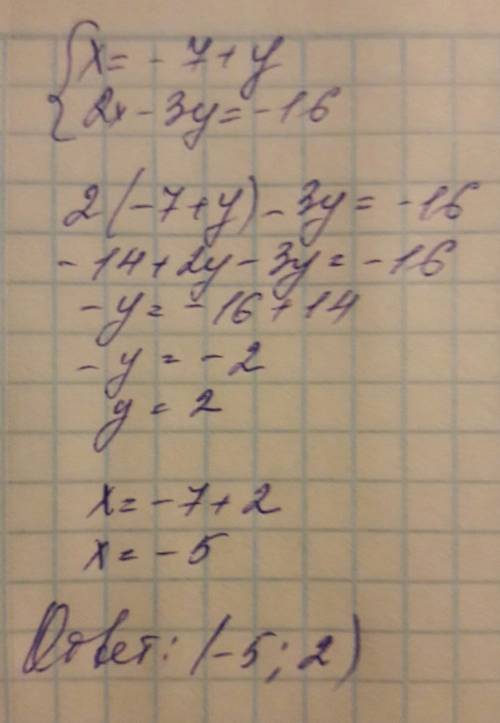 x = - 7 + y
2x - 3y = -16
2 (-7 + y) - 3y = -16
- 14 + 2y - 3y = -16
- y = -16 + 14
- y = -2
y = 2
x = -7 + 2
x = -5
Ответ: (-5; 2)